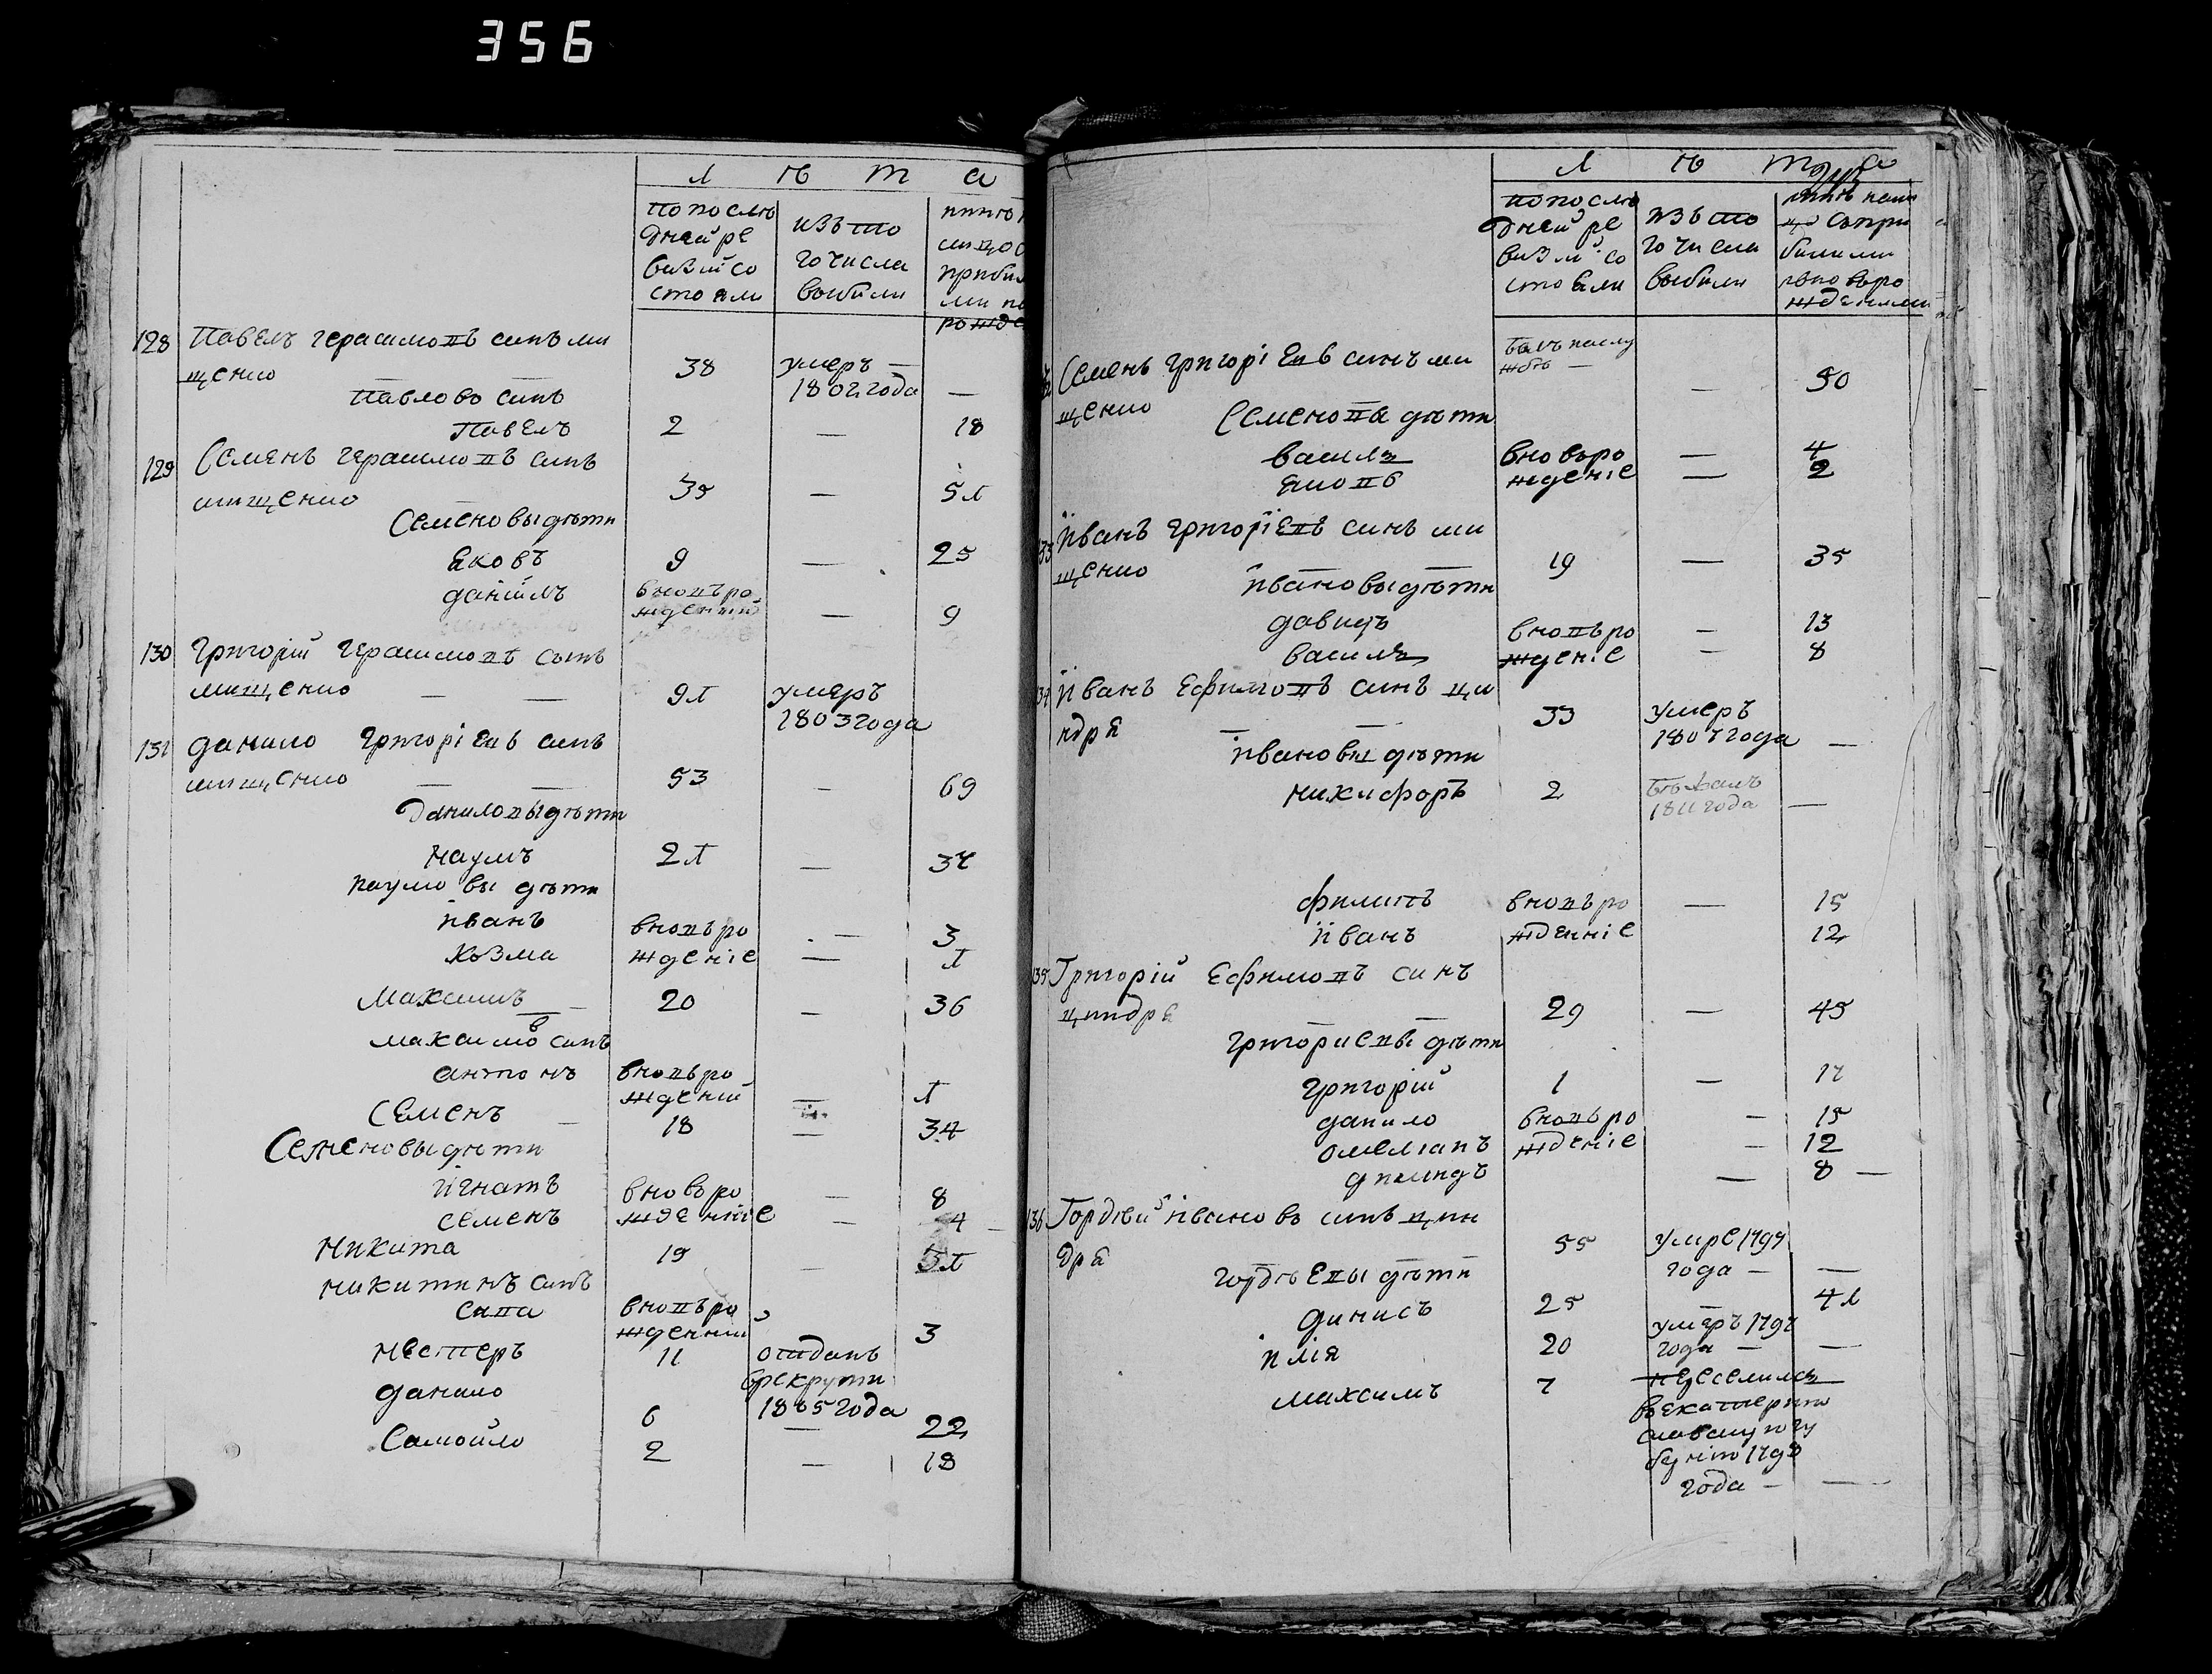 356
Л Ѣ т а
По послѣ
дней ре
визіи со
стояли
изъ то
го числа
выбыли
128 Павелъ Герасимовъ синъ Ми
щенко
38
умеръ —
1802 года —
Павловъ синъ
Павелъ 2 — 18
129 Семенъ Герасимовъ синъ
Мищенко 35 — 51
Семеновы дѣти
Яковъ 9 — 25
Даніилъ вновъро
жденній — 9
130 Григорій Герасимовъ сынъ
Мищенко — — 91 умеръ
1803 года
131 Данило Григоріевъ синъ
Мищенко — — 53 — 69
Даниловы дѣти
Наумъ 21 — 37
Наумовы дѣти
Иванъ вновъро — 3
Козма жденіе — 1
Максимъ — 20 — 36
Максимовъ синъ
Антонъ вновъро
жденій — 1
Семенъ — 18 — 34
Семеновы дѣти
Игнатъ вновъро — 8
Семенъ жденніе — 4
Никита 19 — 31
Никитинъ синъ
Сава вновъро
жденній 3
Нестеръ 11 отданъ
врекрути
1805 года
Данило 6 — 22
Самойло 2 — 18
Л Ѣ т а
По послѣ
дней ре
визіи со
стояли
изъ то
го числа
выбили
ннѣ нали
цо сопри
билими
новоро
жденними
Семенъ Григоріевъ синъ Ми
щенко
билъ наслу
жбѣ — — 50
Семеновы дѣти
Василь вновъро — 4
Яковъ жденіе — 2
Иванъ Григоріевъ синъ Ми
щенко 19 — 35
Ивановы дѣти
Давидъ вновъро — 13
Василь жденіе — 8
Иванъ Ефимовъ синъ Ци
ндря — — 33 умеръ
1807 года —
Ивановы дѣти
Никифоръ 2 бѣжалъ
1811 года —
Филипъ вновъро — 15
Иванъ жденніе 12
135 Григорій Ефимовъ синъ
Циндря — — 29 — 45
Григориевы дѣти
Григорій 1 — 17
Данило вновъро — 15
Омелянъ жденіе — 12
— 8 —
136 Гордѣй Ивановъ синъ Цин
дря 55 умре 1797
года — —
Гордѣевы дѣти
Динисъ 25 — 41
Илія 20 умеръ 1797
года — —
Максимъ 7 переселился
въ Екатерино
славскую гу
бернію 1798
года — —